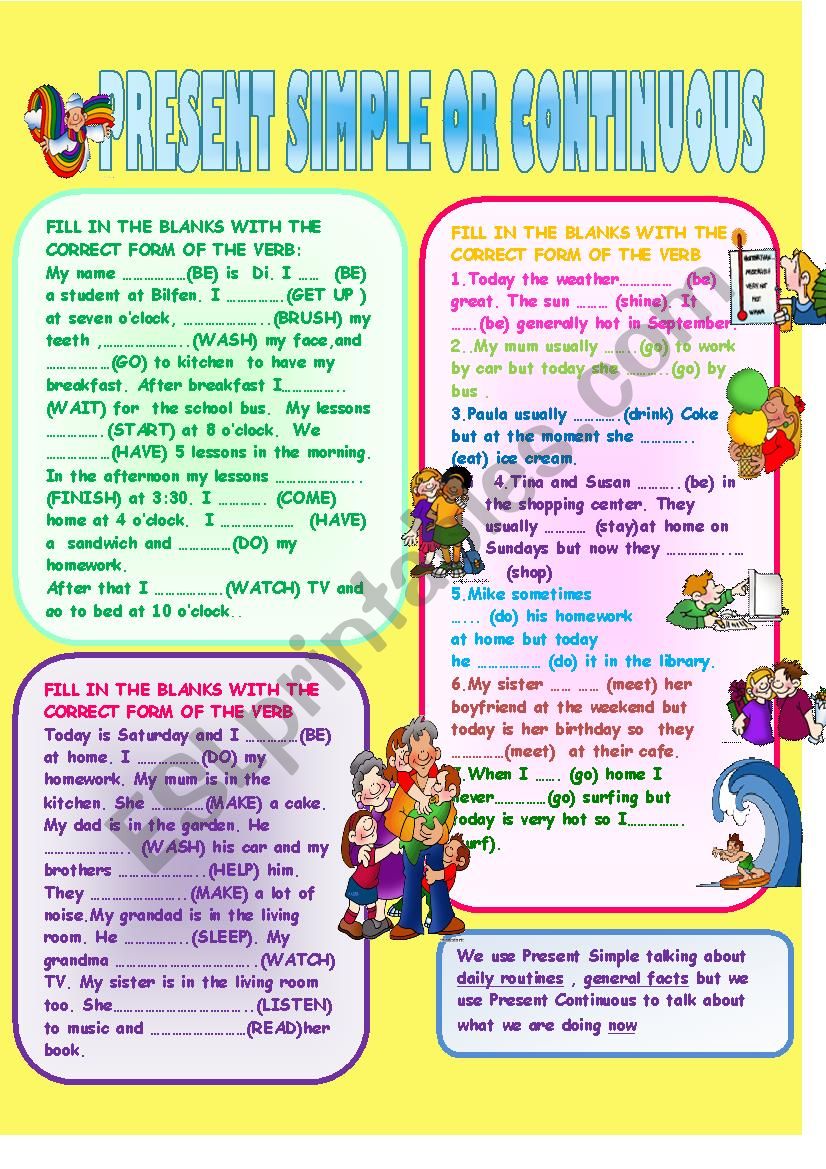 PRESENT SIMPLE OR CONTINUOUS
FILL IN THE BLANKS WITH THE
CORRECT FORM OF THE VERB:
My name ………………(BE) is Di. I …… (BE)
a student at Bilfen. I …………….(GET UP )
at seven o'clock, …………………..(BRUSH) my
teeth ,…………………..(WASH) my face,and
………………(GO) to kitchen to have my
breakfast. After breakfast I……………..
(WAIT) for the school bus. My lessons
……………. (START) at 8 o'clock. We
………………(HAVE) 5 lessons in the morning.
In the afternoon my lessons …………………..
(FINISH) at 3:30. I …………. (COME)
home at 4 o'clock. I ………………… (HAVE)
a sandwich and ……………(DO) my
homework.
After that I ……………….(WATCH) TV and
go to bed at 10 o'clock..
FILL IN THE BLANKS WITH THE
CORRECT FORM OF THE VERB
Today is Saturday and I ……………(BE)
at home. I ………………(DO) my
homework. My mum is in the
kitchen. She ……………(MAKE) a cake.
My dad is in the garden. He
………………….. (WASH) his car and my
brothers ……………………..(HELP) him.
They …………………….. (MAKE) a lot of
noise.My grandad is in the living
room. He ……………..(SLEEP). My
grandma ………………………………….. (WATCH)
TV. My sister is in the living room
too. She………………………………..(LISTEN)
to music and ………………………(READ)her
book.
FILL IN THE BLANKS WITH THE
CORRECT FORM OF THE VERB
1.Today the weather…………… (be)
great. The sun ……… (shine). It
…….(be) generally hot in September.
2..My mum usually ……..(go) to work
by car but today she ………..(go) by
bus .
3.Paula usually ………….(drink) Coke
but at the moment she …………..
(eat) ice cream.
4.Tina and Susan ………..(be) in
the shopping center. They
usually ………… (stay)at home on
Sundays but now they ……………..…
………. (shop)
5.Mike sometimes
…... (do) his homework
at home but today
he ……………… (do) it in the library.
6.My sister …… …… (meet) her
boyfriend at the weekend but
today is her birthday so they
……………(meet) at their cafe.
7.When I ……. (go) home I
never……………(go) surfing but
today is very hot so I…………….
(surf).
We use Present Simple talking about
daily routines , general facts but we
use Present Continuous to talk about
what we are doing now
ESLprintables.com